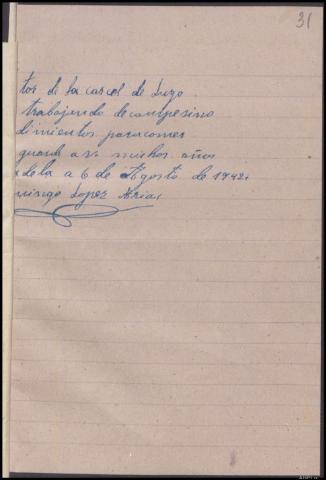 31
tor de la carcel de Lugo
trabajando de campesino
dimientos para comer
guarde a V. muchos años
dela a 6 de Agosto de 1942.
mingo Lopez Arias